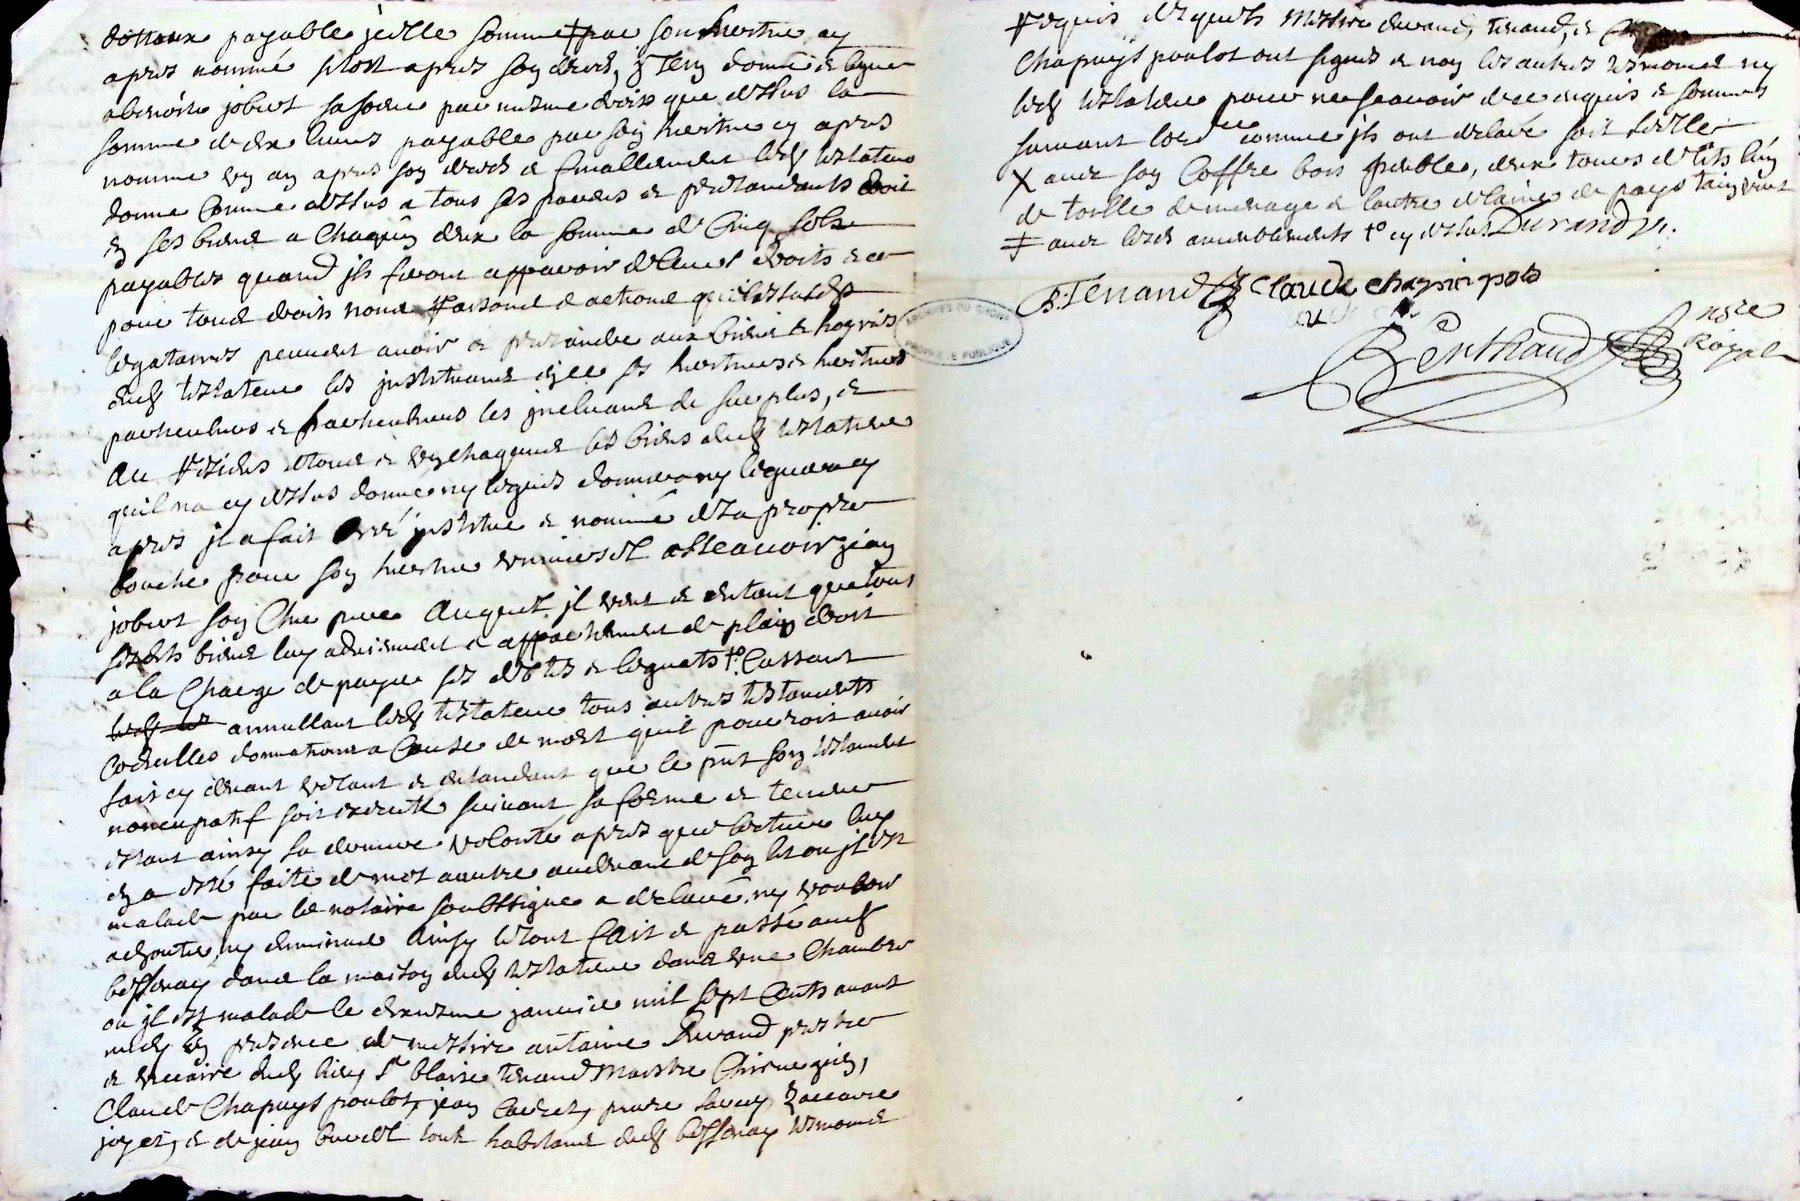 payable jcelle somme ‡ par son heritier cy
apres nommé sitost apres son deces, Item donne & legue
a benoite jobert sa soeur par mesme droix que dessus la
somme de dix livres payable par son heritier cy apres
nommé un an apres son deces & finallement led testateur
donne comme dessus a tous ses parens & pretendants droit
en ses biens a chaqun deux la somme de Cinq sols
payables quand jls feront apparoir de leurs droits & ce
pour tous droits noms raisons & actions que lesdts
legataires peuvent avoir & pretendre aux biens & hoyries
dud testateur les jnstituant en jcelle ses heritiers & heritieres
particuliers & particulieres les jncluant du surplus, &
Au residus de tous & un chaquns les biens dud testateur
quil na cy dessus donné ny legués donnera ny leguera cy
apres jl a fait Créé jnstitué & nommé de sa propre
bouche pour son heritier universel asseavoir jean
jobert son Cher pere Auquel jl veut & entant que tous
sesdts biens luy adviennent & appartiennent de plain droit
a la Charge de payer ses debtes & legats to. Cassant
annullant led testateur tous autres testaments
Codicilles donnations a Cause de mort quil pourroit avoir
fait cy devant voulant & entandant que le pnt son testament
noncupatif soit executé suivant sa forme & teneur
estant ainsy sa derniere volonté apres que lecture luy
en a esté faite de mot a autre audevant de son lit ou jl est
malade par le notaire soubssigné a declaré ny vouloir
adjouter ny diminuer Ainsy letout fait & passé aud
bessenay dans la maison dud testateur dans une Chambre
ou jl est malade le deuxieme janvier mil sept Cents avant
midy En presence de messire antoine Durand prestre
& vicaire dud lieu Sr blaise tenand Maistre Chirurgien,
Claude Chapuys poulot, jean pierre
& de jean tous habitans dud bessenay tesmoins
requis desquels Messire durand, tenand, &
Chapuys poulot ont signés & non les autres tesmoins ny
led testateur pour ne scavoir de ce enquis & sommés
suivant lordce comme jls ont declaré soit seelle
X avec son Coffre bois deux tours de lits lun
de toille de menage & lautre de laine de pays
‡ avec lesds ameublements to cy dessus Durand
B. Tenand Claude chapuis polo
Berthaud nore
Royal
ARCHIVES DU RHONE